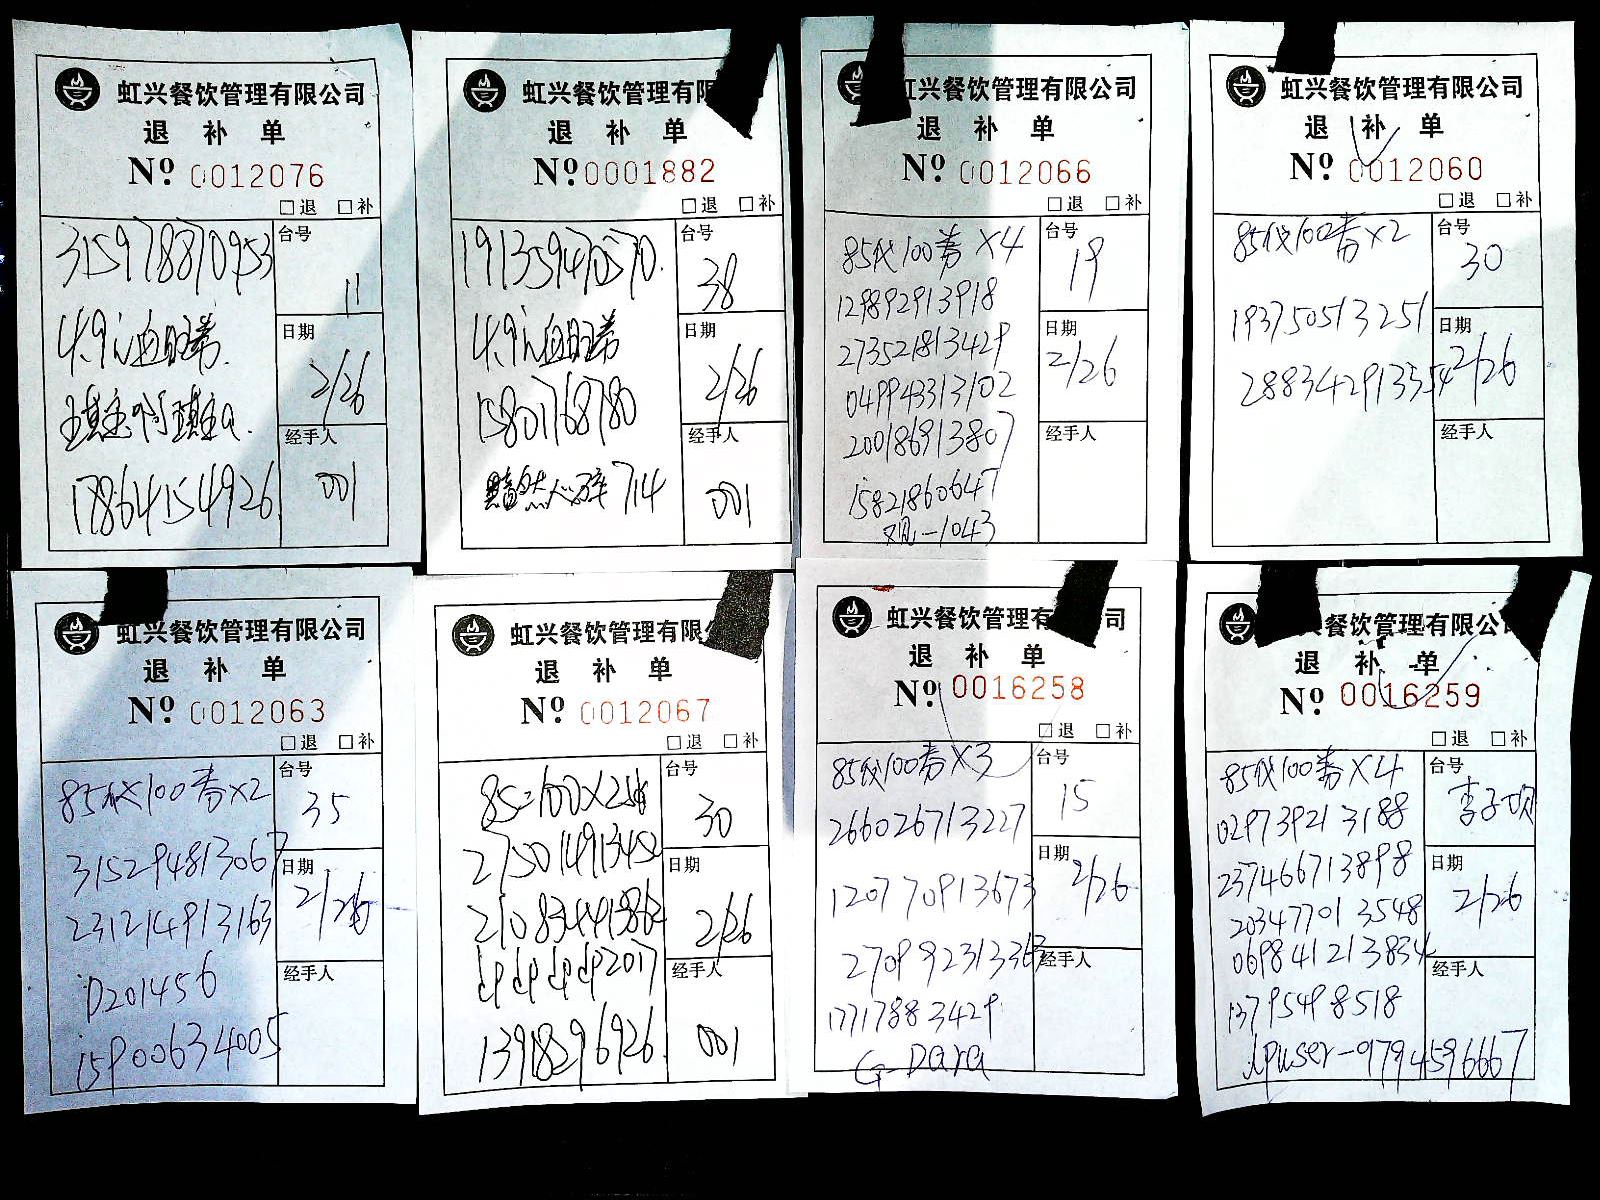 虹兴餐饮管理有限公司
退 补 单
Nº 0012076
□退 □补
315978870953
台号
11
4.9元血旺券
日期
2/26
经手人
001
17864154926
虹兴餐饮管理有限
退 补 单
Nº 0001882
□退 □补
191359470570
台号
38
4.9元血旺券
日期
2/26
15801768780
经手人
黯然心碎714
001
虹兴餐饮管理有限公司
退 补 单
Nº 0012066
□退 □补
85代100券×4
台号
19
129892913918
273521813429
日期
2/26
049943313102
200186913807
经手人
15821860647
观一1043
虹兴餐饮管理有限公司
退 补 单
Nº 0012060
□退 □补
85代100券×2
台号
30
193750513251
日期
288342913354
2/26
经手人
虹兴餐饮管理有限公司
退 补 单
Nº 0012063
□退 □补
85代100券×2
台号
35
315294813067
日期
2/26
231214913163
D201456
经手人
15900634005
虹兴餐饮管理有限
退 补 单
Nº 0012067
□退 □补
85=100×2张
台号
30
275014913452
日期
210834413862
2/26
dpdpdpdp2017
经手人
13918296926
001
虹兴餐饮管理有 司
退 补 单
Nº 0016258
□退 □补
85代100券×3
台号
15
266026713227
日期
2/26
120770913673
270992313363
经手人
17717883429
G-Dara
餐饮管理有限公
退 补 单
Nº 0016259
□退 □补
85代100券×4
台号
李子坝
029739213188
237466713898
日期
2/26
203477013548
069841213834
经手人
13795498518
dpuser-9794596667